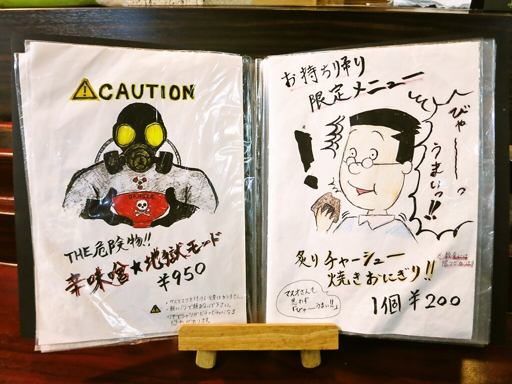 CAUTION
DANGER
THE危険物!!
辛味噌★地獄モード
¥950
お持ち帰り
限定メニュー
びゃ〜〜っ
うまいっ!!
炙りチャーシュー
焼きおにぎり!!
マスオさんも
思わず
「びゃーうまい!!」
1個 ¥200